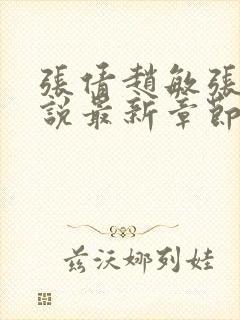 張倩趙敏張
說最新章節
茲沃娜列娃